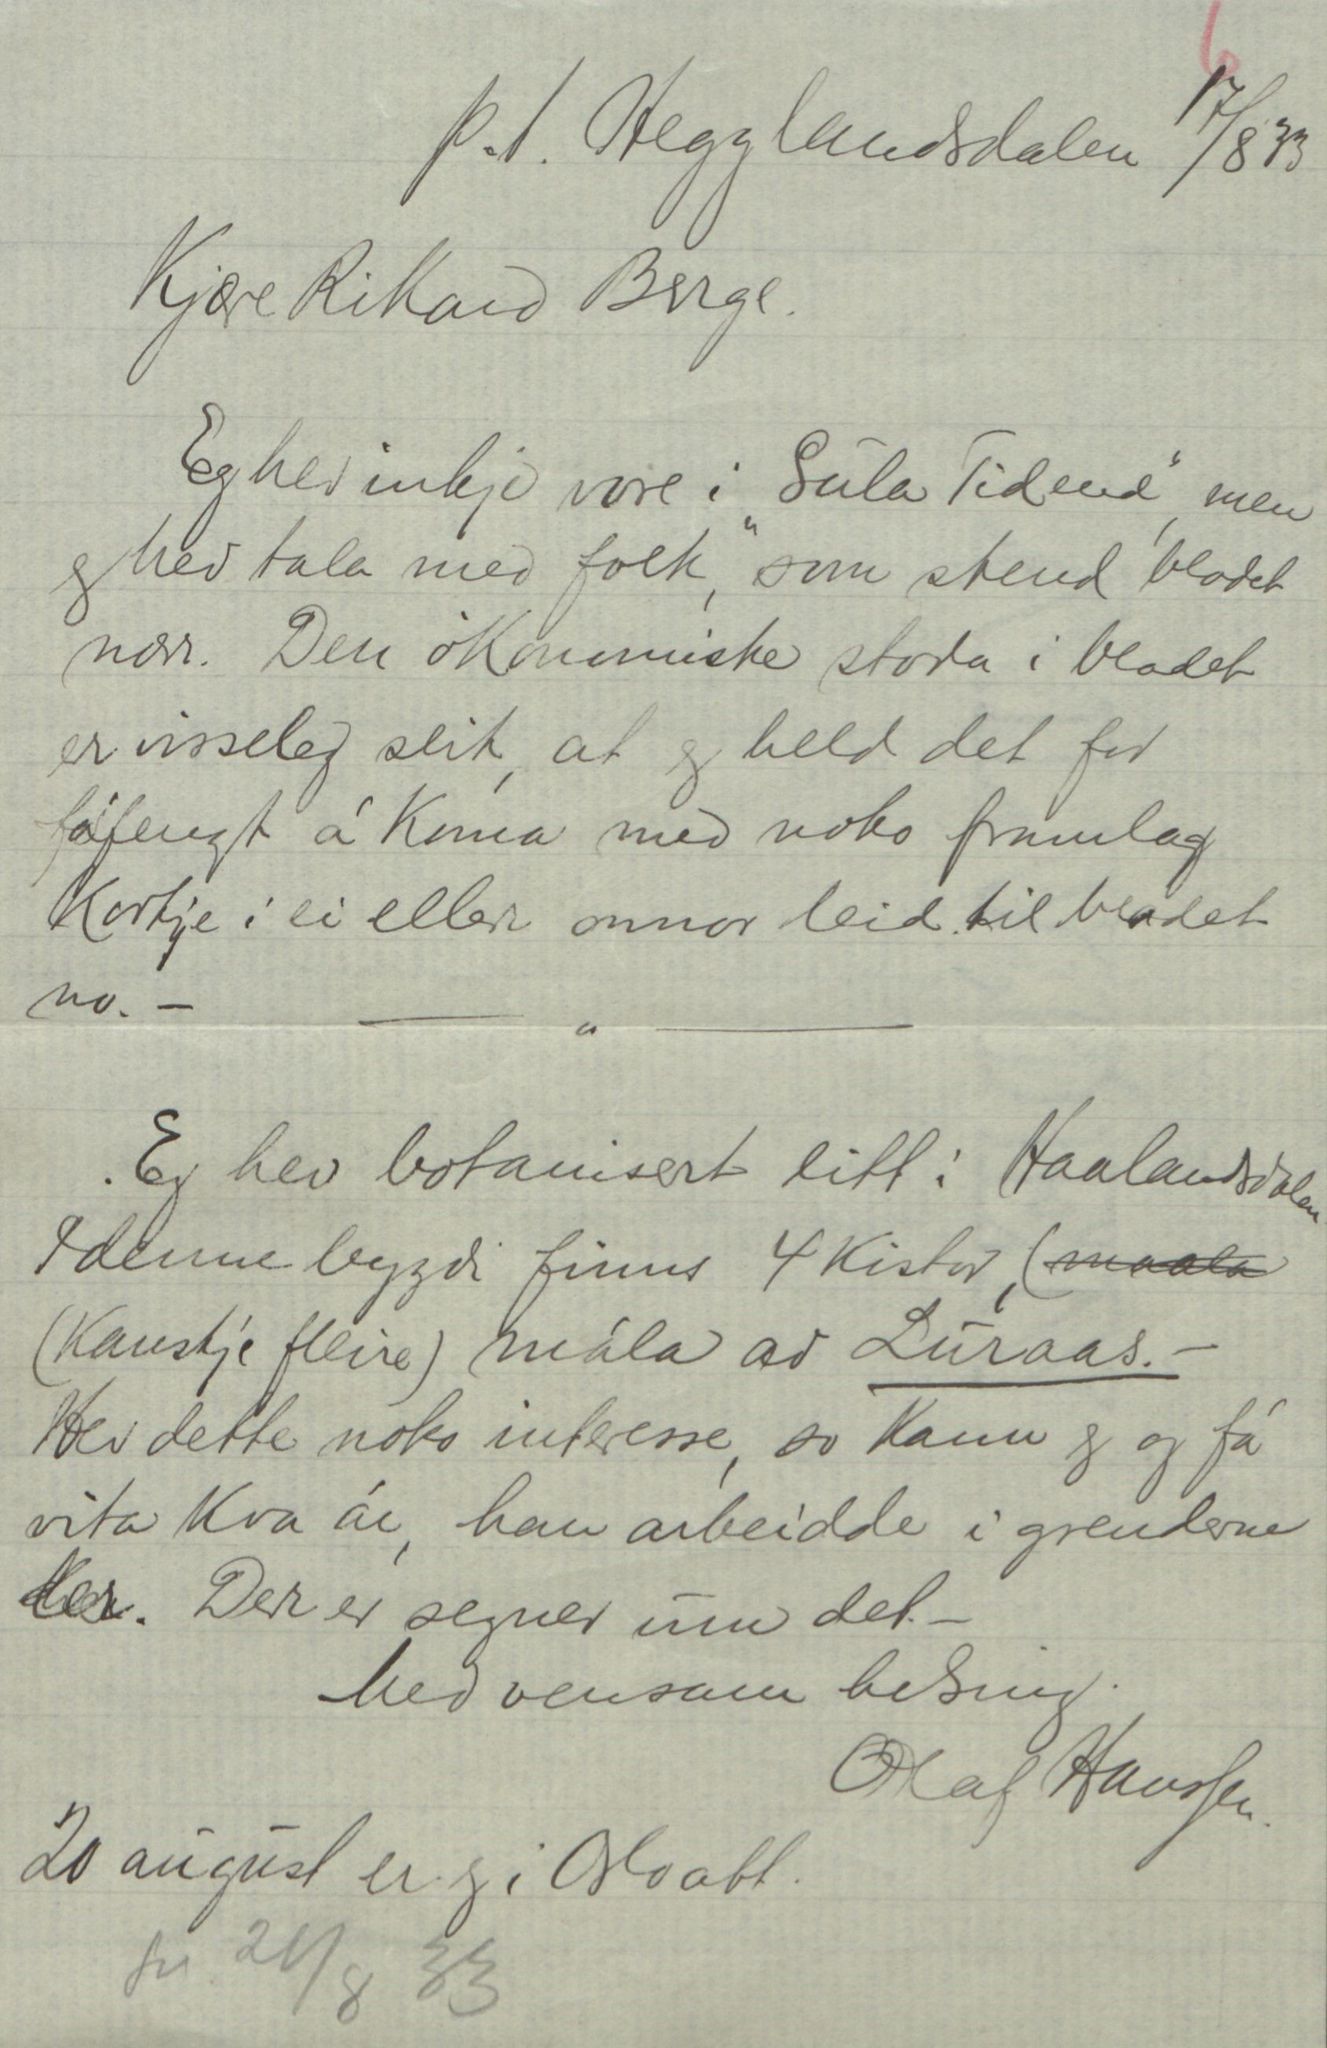 6
p.t. Hegglandsdalen 17/8 33
Kjære Rikard Berge.
Eg hev inkje vore i „Gula Tidend“, men
eg hev tala med folk, som stend bladet
nær. Den ökonomiske stoda i bladet
er visseleg slik, at eg held det for
fåfengt å koma med noko framlag
korkje i ei eller onnor leid til bladet
no. —
— " —
Eg hev botanisert litt i Haalandsdalen.
I denne bygdi finns 4 kistor, (maala
(kanskje fleire) måla av Lūraas. —
Hev dette noko interesse, so kann eg og få
vita kva år, han arbeidde i grenderne
her. Der er segner ūm det. —
Med vensam helsing.
Olaf Hanssen.
20 aūgūst er eg i Oslo att.
sv. 21/8 33